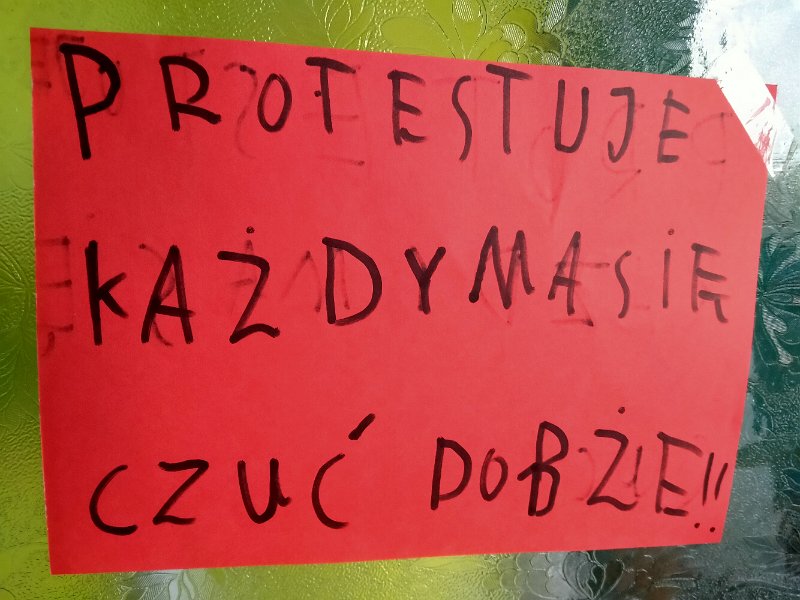 PROTESTUJE
KAŻDYMASIĘ
CZUĆ DOBŻE!!